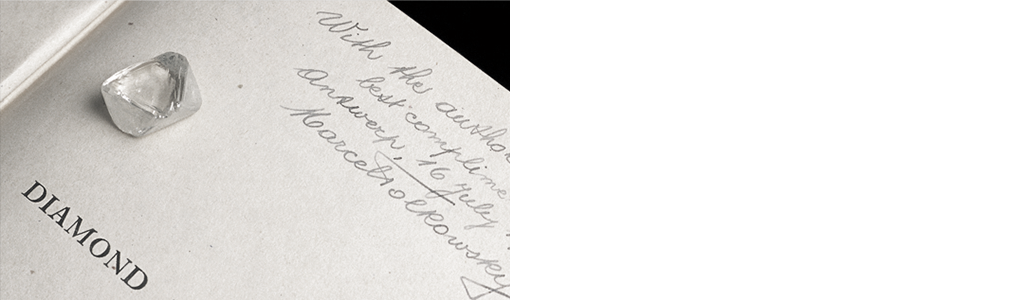 DIAMOND
With the author
best complime
Antwerp, 16 July
Marcel Tolkowsky